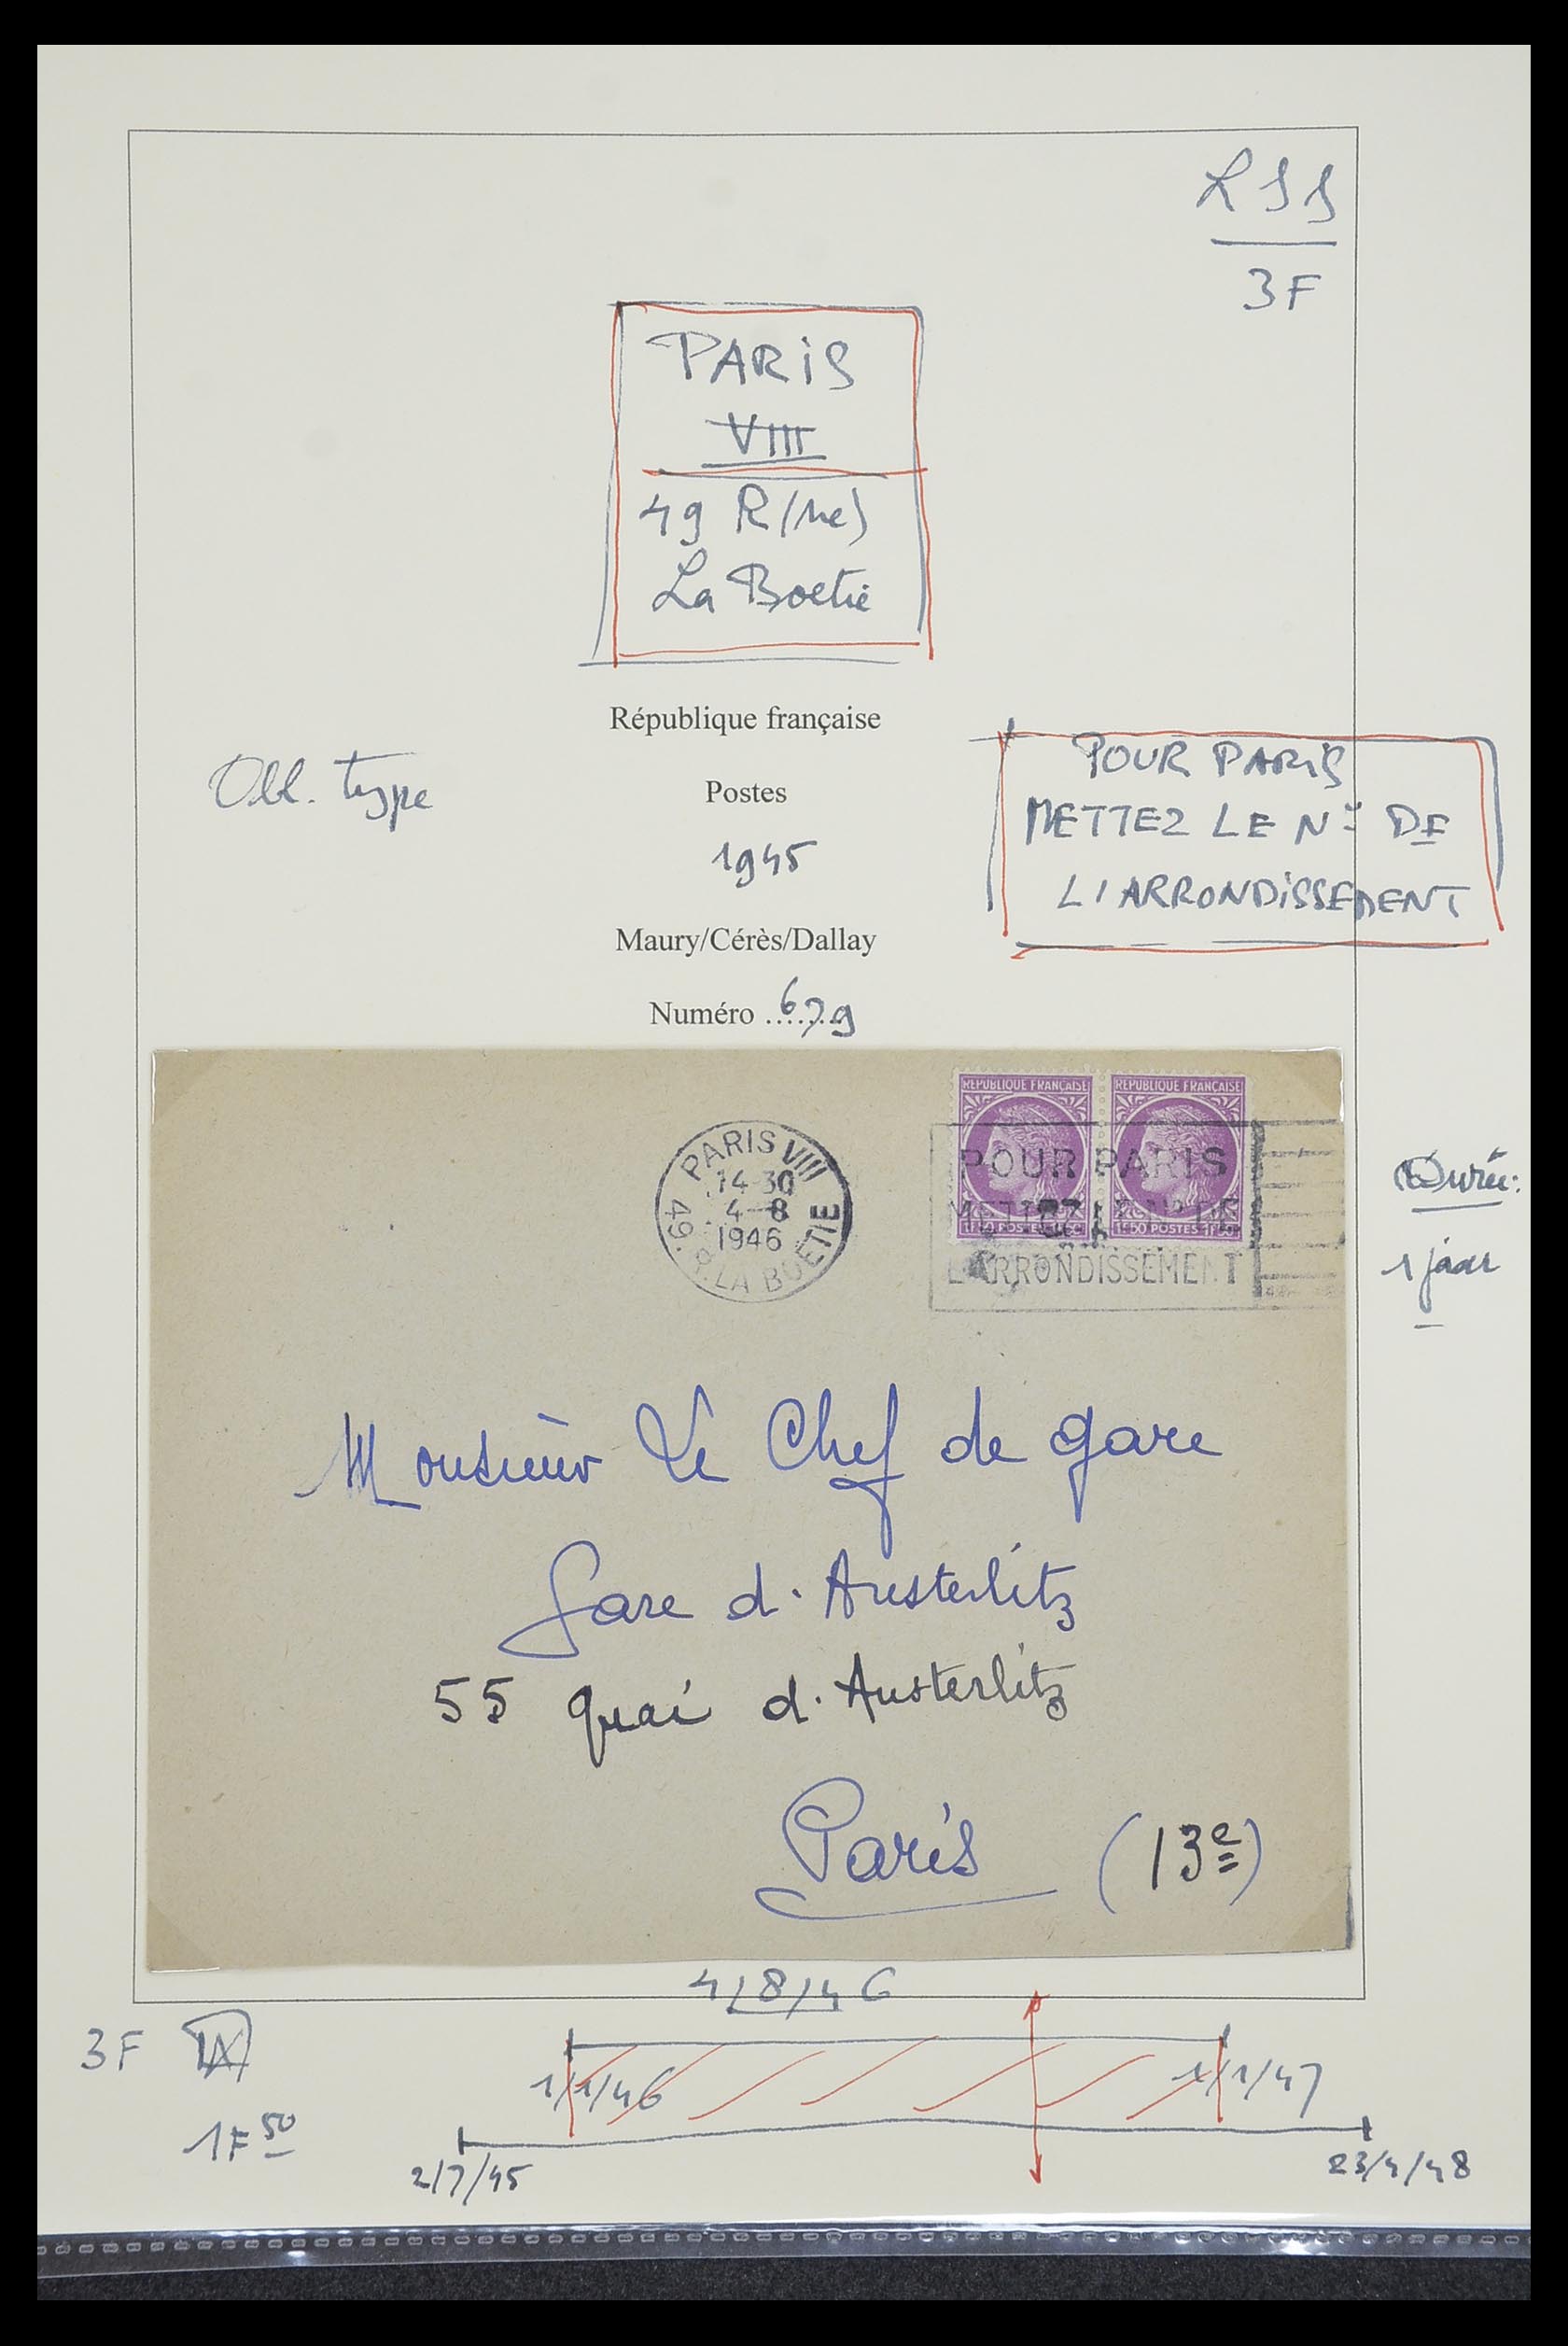 LSS
3F
PARIS
VIII
49 R(ue)
La Boetie
République française
Postes
1945
Maury/Cérès/Dallay
Numéro ........ 679
Obl. type
POUR PARIS
METTEZ LE No DE
L'ARRONDISSEMENT
REPUBLIQUE FRANÇAISE
REPUBLIQUE FRANÇAISE
1F50 POSTES 1F50
PARIS VIII
14-30
4-8
1946
49. R. LA BOETIE
POUR PARIS
METTEZ LE No DE
L'ARRONDISSEMENT
Durée:
1 jaar
Monsieur Le Chef de gare
Gare d'Austerlitz
55 quai d'Austerlitz
Paris (13e)
4/8/46
3F
1/1/46 1/1/47
1F50
2/7/45 23/4/48